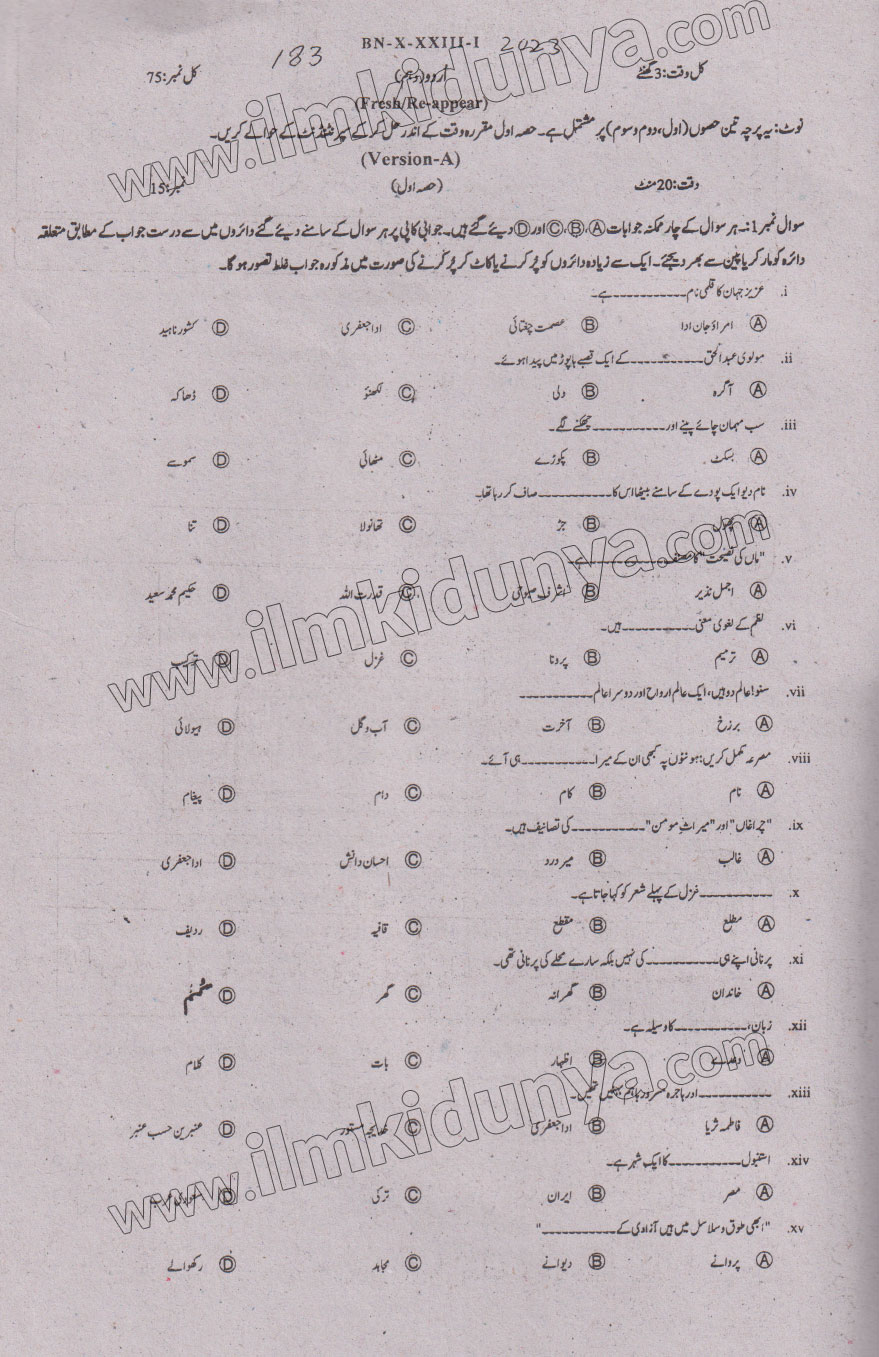 183 BN-X-XXIII-I 2023
کل وقت:3 گھنٹے اُردو(دہم) کل نمبر:75
(Fresh/Re-appear)
نوٹ: یہ پرچہ تین حصوں (اول، دوم و سوم) پر مشتمل ہے۔ حصہ اول مقررہ وقت کے اندر حل کر کے سپرنٹنڈنٹ کے حوالے کریں۔
(Version-A)
وقت:20 منٹ (حصہ اول) نمبر:15
سوال نمبر1:۔ ہر سوال کے چار ممکنہ جوابات Ⓐ،Ⓑ،Ⓒ اور Ⓓ دیئے گئے ہیں۔ جوابی کاپی پر ہر سوال کے سامنے دیئے گئے دائروں میں سے درست جواب کے مطابق متعلقہ
دائرہ کو مارکر یا پین سے بھر دیجئے۔ ایک سے زیادہ دائروں کو پُر کرنے یا کاٹ کر پُر کرنے کی صورت میں مذکورہ جواب غلط تصور ہو گا۔
i. عزیز جہاں کا قلمی نام ۔۔۔۔۔۔۔۔۔۔ ہے۔
Ⓐ امراؤ جان ادا Ⓑ عصمت چغتائی Ⓒ ادا جعفری Ⓓ کشور ناہید
ii. مولوی عبدالحق ۔۔۔۔۔۔۔۔۔۔ کے ایک قصبے ہاپوڑ میں پیدا ہوئے۔
Ⓐ آگرہ Ⓑ دلی Ⓒ لکھنؤ Ⓓ ڈھاکہ
iii. سب مہمان چائے پینے اور ۔۔۔۔۔۔۔۔۔۔ چکھنے لگے۔
Ⓐ بسکٹ Ⓑ پکوڑے Ⓒ مٹھائی Ⓓ سموسے
iv. نام دیو ایک پودے کے سامنے بیٹھا اس کا ۔۔۔۔۔۔۔۔۔۔ صاف کر رہا تھا۔
Ⓐ پھول Ⓑ جڑ Ⓒ تھانولا Ⓓ تنا
v. "ماں کی نصیحت" کا مصنف ۔۔۔۔۔۔۔۔۔۔ ہے۔
Ⓐ اجمل نذیر Ⓑ اشرف صبوحی Ⓒ قدرت اللہ Ⓓ حکیم محمد سعید
vi. نظم کے لغوی معنی ۔۔۔۔۔۔۔۔۔۔ ہیں۔
Ⓐ ترمیم Ⓑ پرونا Ⓒ غزل Ⓓ ترکیب
vii. سنو! عالم دو ہیں، ایک عالم ارواح اور دوسرا عالم ۔۔۔۔۔۔۔۔۔۔
Ⓐ برزخ Ⓑ آخرت Ⓒ آب و گل Ⓓ ہیولائی
viii. مصرعہ مکمل کریں: ہونٹوں پہ کبھی ان کے میرا ۔۔۔۔۔۔۔۔۔۔ ہی آئے۔
Ⓐ نام Ⓑ کام Ⓒ دام Ⓓ پیغام
ix. "چراغاں" اور "میراثِ مومن" ۔۔۔۔۔۔۔۔۔۔ کی تصانیف ہیں۔
Ⓐ غالب Ⓑ میر درد Ⓒ احسان دانش Ⓓ ادا جعفری
x. ۔۔۔۔۔۔۔۔۔۔ غزل کے پہلے شعر کو کہا جاتا ہے۔
Ⓐ مطلع Ⓑ مقطع Ⓒ قافیہ Ⓓ ردیف
xi. پرنانی اپنے ہی ۔۔۔۔۔۔۔۔۔۔ کی نہیں بلکہ سارے محلے کی پرنانی تھی۔
Ⓐ خاندان Ⓑ گھرانہ Ⓒ گھر Ⓓ
xii. زبان، ۔۔۔۔۔۔۔۔۔۔ کا وسیلہ ہے۔
Ⓐ Ⓑ اظہار Ⓒ بات Ⓓ کلام
xiii. ۔۔۔۔۔۔۔۔۔۔ اور ہاجرہ مسرور باہم بہنیں تھیں۔
Ⓐ فاطمہ ثریا Ⓑ ادا جعفری Ⓒ خدیجہ مستور Ⓓ عنبرین حسیب عنبر
xiv. استنبول ۔۔۔۔۔۔۔۔۔۔ کا ایک شہر ہے۔
Ⓐ مصر Ⓑ ایران Ⓒ ترکی Ⓓ سعودی عرب
xv. "ابھی طوق و سلاسل میں ہیں آزادی کے ۔۔۔۔۔۔۔۔۔۔"
Ⓐ پروانے Ⓑ دیوانے Ⓒ مجاہد Ⓓ رکھوالے
www.ilmkidunya.com
www.ilmkidunya.com
www.ilmkidunya.com